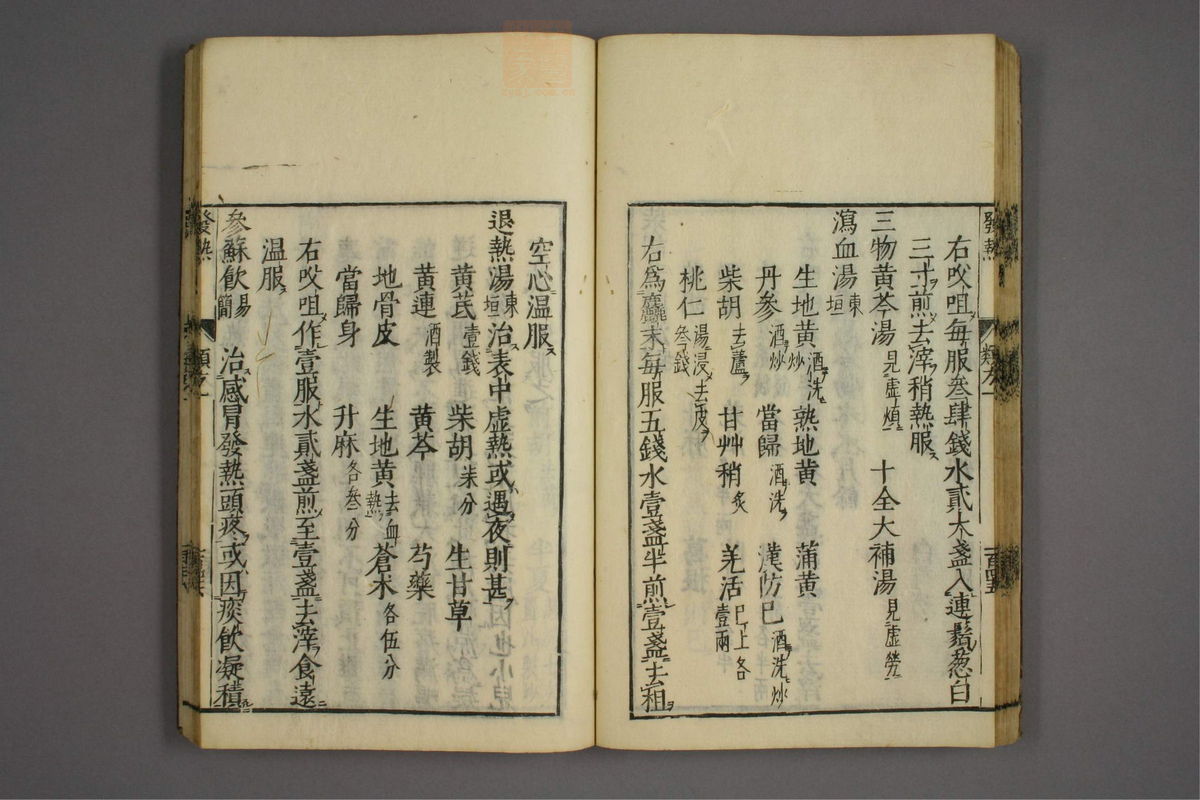 發熱
類方一
右㕮咀每服叁肆錢水貳大盞入連鬚葱白
三寸煎去滓稍熱服
三物黃芩湯見虛煩　十全大補湯見虛勞
瀉血湯東垣
生地黃酒洗炒　熟地黃　蒲黃
丹參酒炒　當歸酒洗　漢防巳酒洗炒
柴胡去蘆　甘艸稍炙　羌活巳上各壹兩
桃仁湯浸去皮叁錢
右爲麄末每服五錢水壹盞半煎壹盞去柤
空心温服
退熱湯東垣治表中虛熱或遇夜則甚
黃芪壹錢　柴胡柒分　生甘草
黃連酒製　黃芩　芍藥
地骨皮　生地黃去血熱　蒼朮各伍分
當歸身　升麻各叁分
右㕮咀作壹服水貳盞煎至壹盞去滓食遠
温服
參蘇飲易簡　治感冒發熱頭疼或因痰飲凝積
發熱
類方一